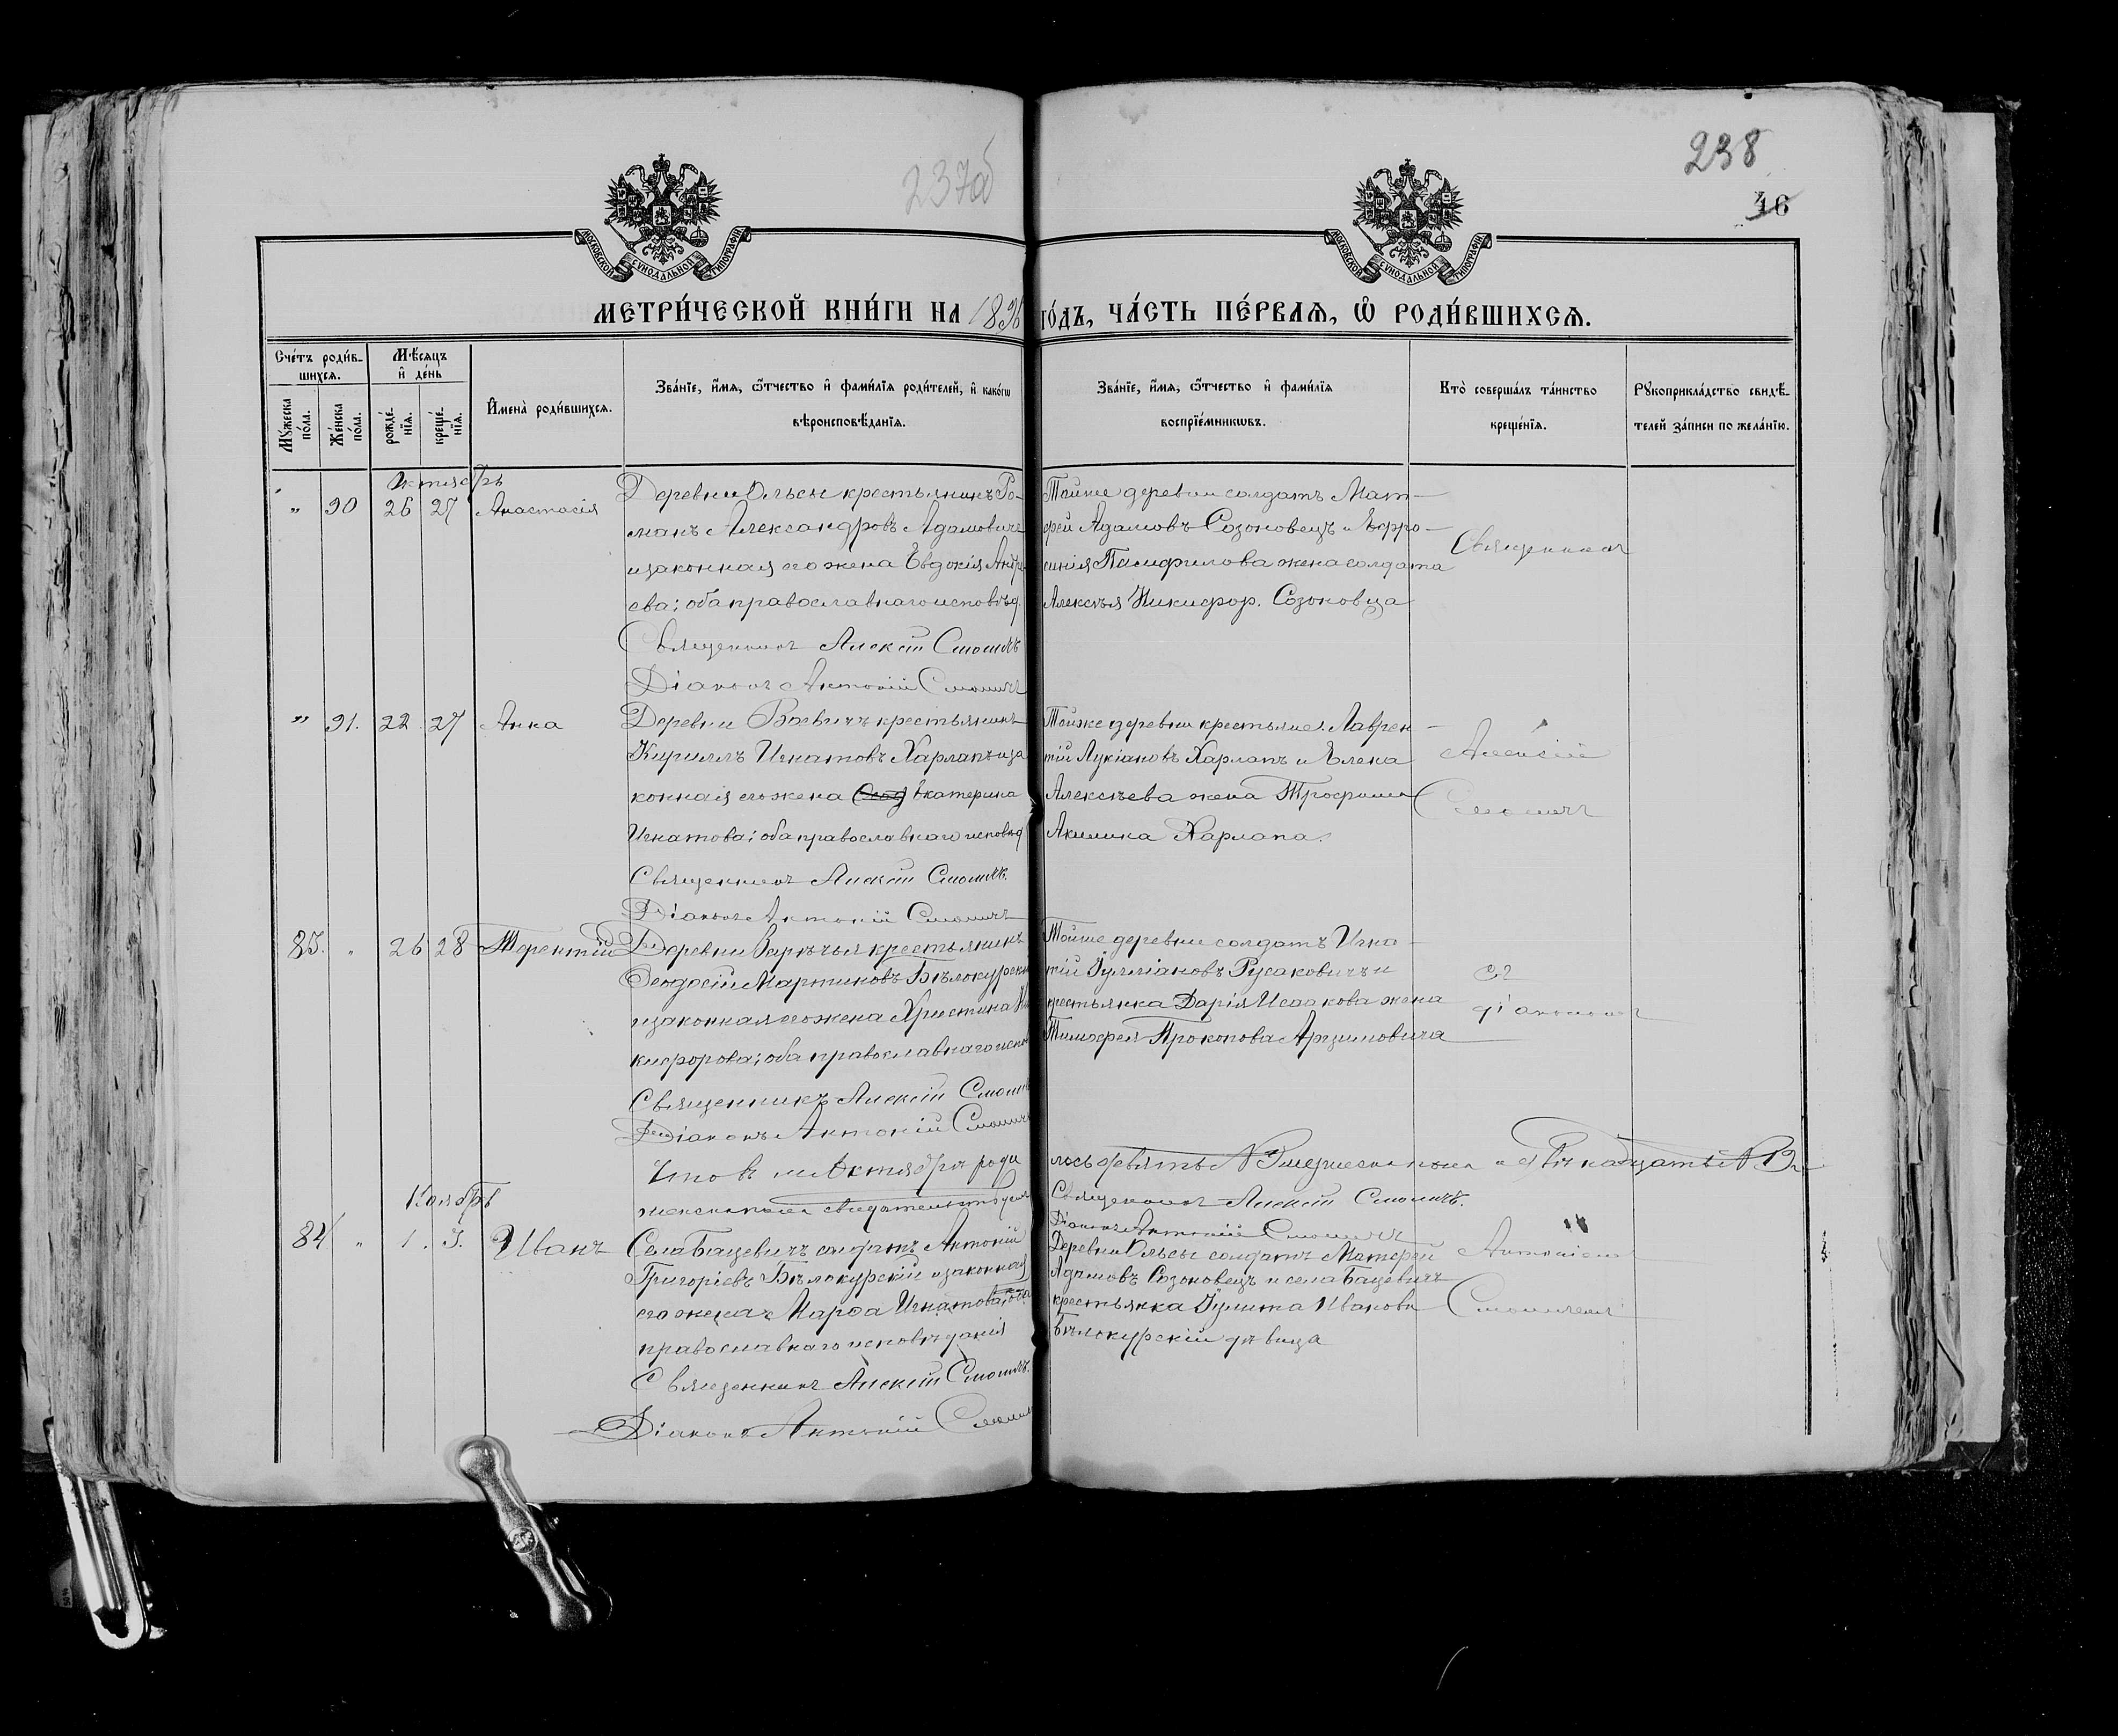 237об
238
46
МОСКОВСКОЙ СѴНОДАЛЬНОЙ ТИПОГРАФІИ
МОСКОВСКОЙ СѴНОДАЛЬНОЙ ТИПОГРАФІИ
МЕТРИ́ЧЕСКОЙ КНИ́ГИ НА 1896 ГО́ДЪ, ЧА́СТЬ ПЕ́РВАѦ, Ѡ҆ РОДИ́ВШИХСѦ.
Сче́тъ роди́в-
шихсѧ.
Мѣ́сѧцъ
и҆ де́нь
Мꙋ́жеска по́ла.
Же́нска по́ла.
рожде́нїѧ.
креще́нїѧ.
И҆мена̀ роди́вшихсѧ.
Зва́нїе, и҆́мѧ, ѻ҆́тчество и҆ фами́лїѧ роди́телей, и҆ како́гѡ
вѣроисповѣ́данїѧ.
Зва́нїе, и҆́мѧ, ѻ҆́тчество и҆ фами́лїѧ
воспрїе́мникѡвъ.
Кто̀ соверша́лъ та́инство
креще́нїѧ.
Рꙋкоприкла́дство свидѣ́-
телей за́писи по жела́нїю.
Октябрь
" 90 26 27 Анастасія
Деревни Ольсы крестьянинъ Ро-
манъ Александровъ Адамовичъ
и законная его жена Евдокія Андре
ева; оба православнаго исповѣд.
Священникъ Алексій Смоличъ
Діаконъ Антоній Смоличъ
Тойже деревни солдатъ Мат-
фей Адамовъ Созоновецъ и Евфро-
синія Памфилова жена солдата
Алексѣя Никифор. Созоновца
Священникъ
" 91. 22. 27 Анна
Деревни Воевичъ крестьянинъ
Кириллъ Игнатовъ Харлапъ и за
конная его жена Екатерина
Игнатова; оба православнаго исповѣд
Священникъ Алексій Смоличъ.
Діаконъ Антоній Смоличъ
Тойже деревни крестьяне: Лаврен-
тій Лукіановъ Харлапъ и Елена
Алексѣева жена Трофима
Акимика Харлапа.
Алексій
Смоличъ
83. " 26 28 Терентій
Деревни крестьянинъ
Ѳеодосій Мартиновъ Бѣлокурскій
и законная его жена Христина Ни
кифорова; оба православнаго испов
Священникъ Алексій Смолич
Діаконъ Антоній Смоличъ
Тойже деревни солдатъ Игна-
тій Іулліановъ Русаковичъ и
крестьянка Дарія Исаакова жена
Тимофея Прокопова Арцимовича
съ
діакономъ
Что въ м. Октябрѣ роди
лось девять N 9 мужеска пола и двѣнадцать N 12
женска пола свидѣтельствуемъ
Священникъ Алексій Смоличъ.
Діаконъ Антоній Смоличъ
Ноябрь
84 " 1. 3. Иванъ
Села Бацевичъ солдатъ Антоній
Григоріевъ Бѣлокурскій и законная
его жена Марѳа Игнатова; оба
православнаго исповѣданія
Священникъ Алексій Смоличъ.
Діаконъ Антоній Смолич
Деревни Ольсы солдатъ Матфей
Адамовъ Созоновецъ и села Бацевичъ
крестьянка Іулита Иванова
Бѣлокурскій дѣвица
Антоніемъ
Смоличемъ